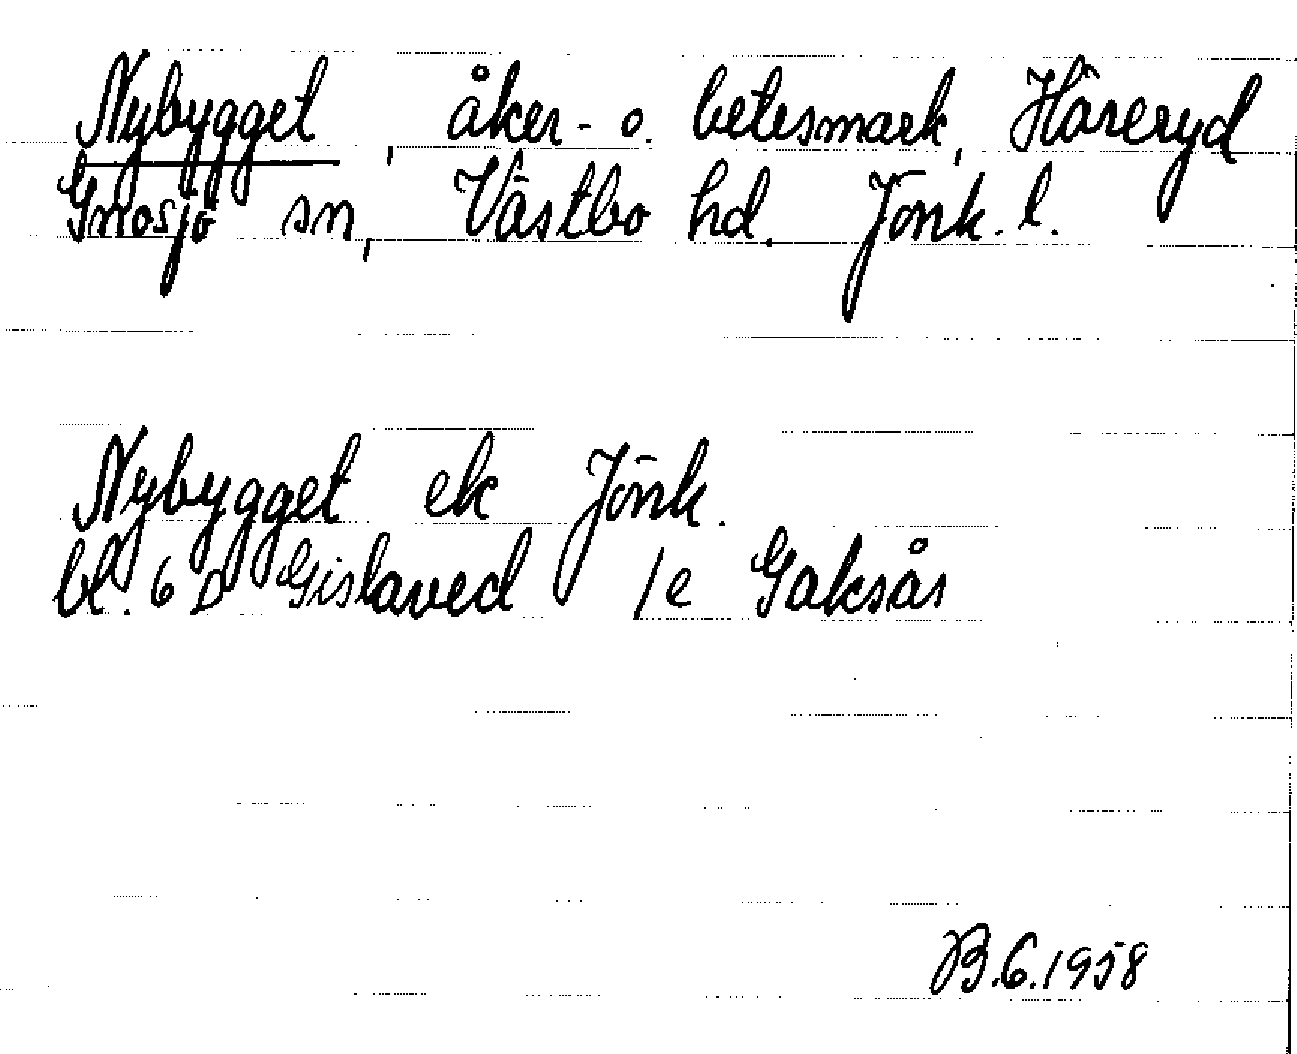 Nybygget, åker- o. betesmark, Håreryd
Gnosjö sn, Västbo hd. Jönk. l.
Nybygget ek Jönk.
bl. 6 D Gislaved 1e Gaksås
B.G.1958